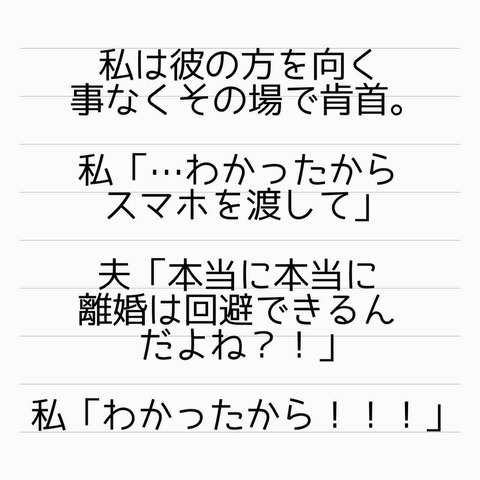 私は彼の方を向く
事なくその場で肯首。
私「…わかったから
スマホを渡して」
夫「本当に本当に
離婚は回避できるん
だよね？！」
私「わかったから！！！」